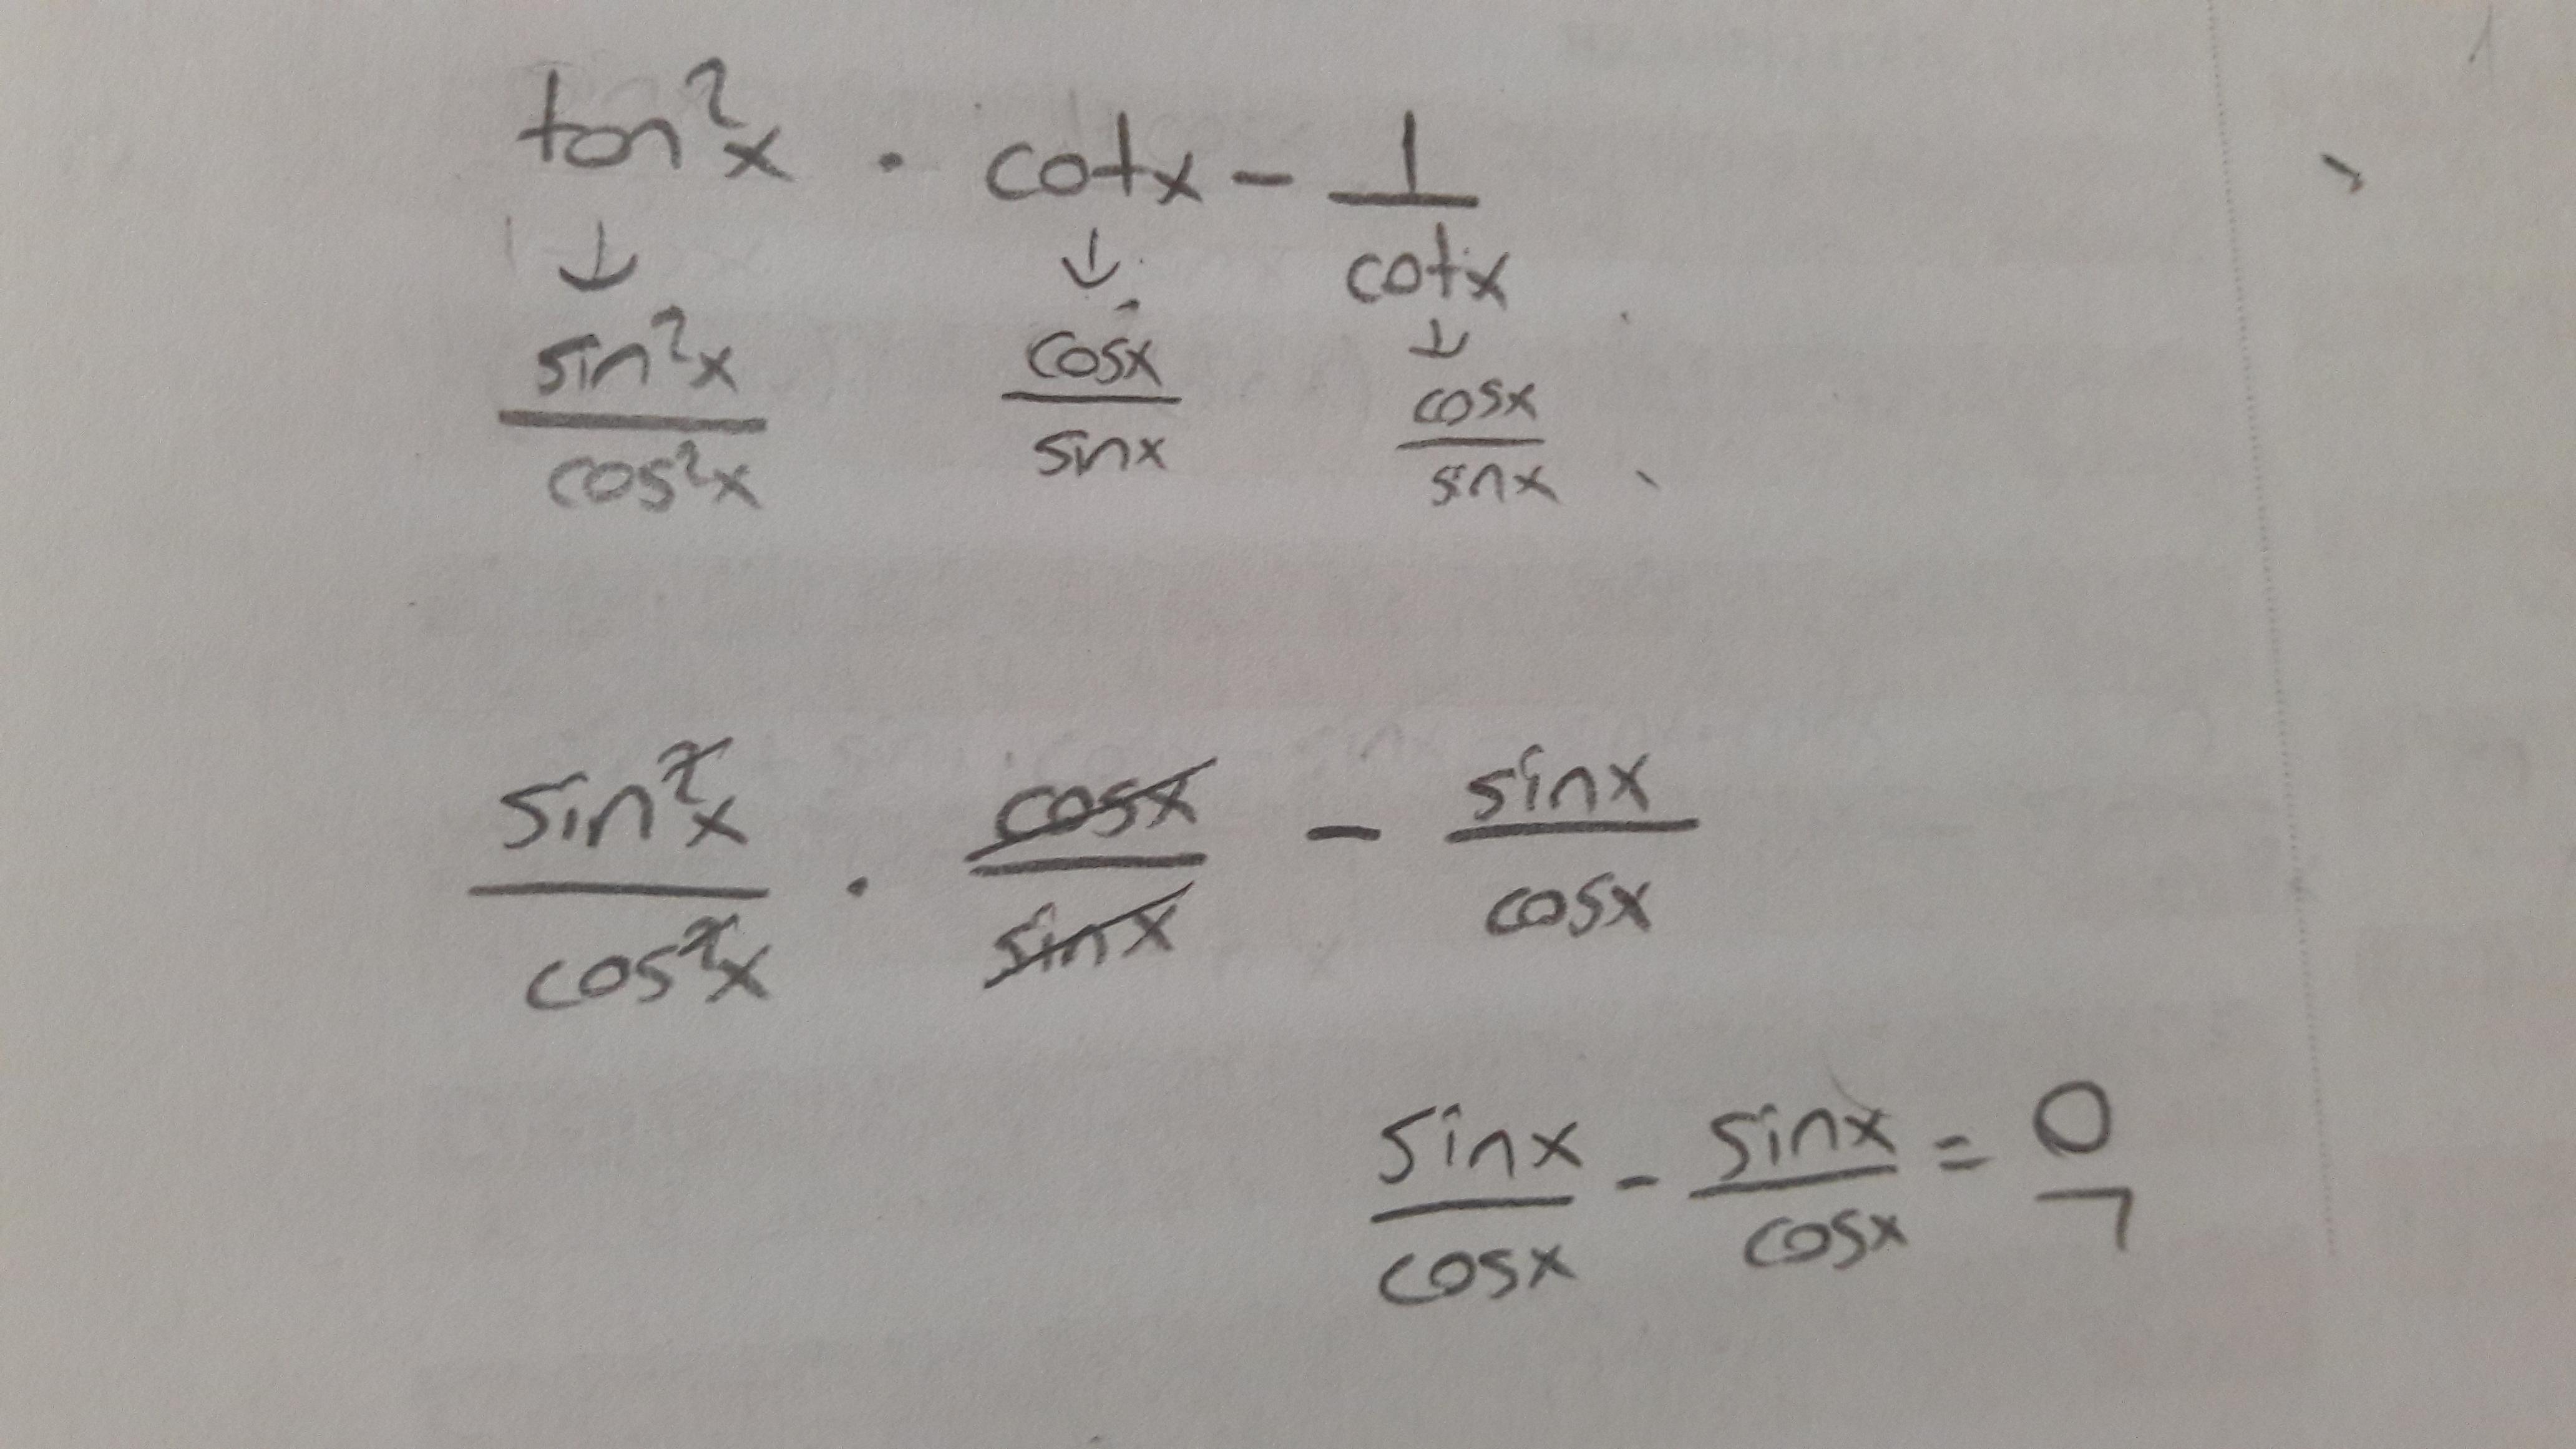 tan²x · cotx - 1/cotx
↓ ↓ ↓
sin²x/cos²x cosx/sinx cosx/sinx
sin²x/cos²x · cosx/sinx - sinx/cosx
sinx/cosx - sinx/cosx = 0